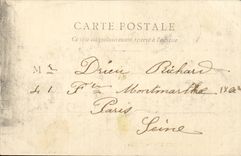 CARTE POSTALE
Ce côté est exclusivement réservé à l'adresse
Mr Drieu Richard
41 Fg Montmartre
Paris
Seine